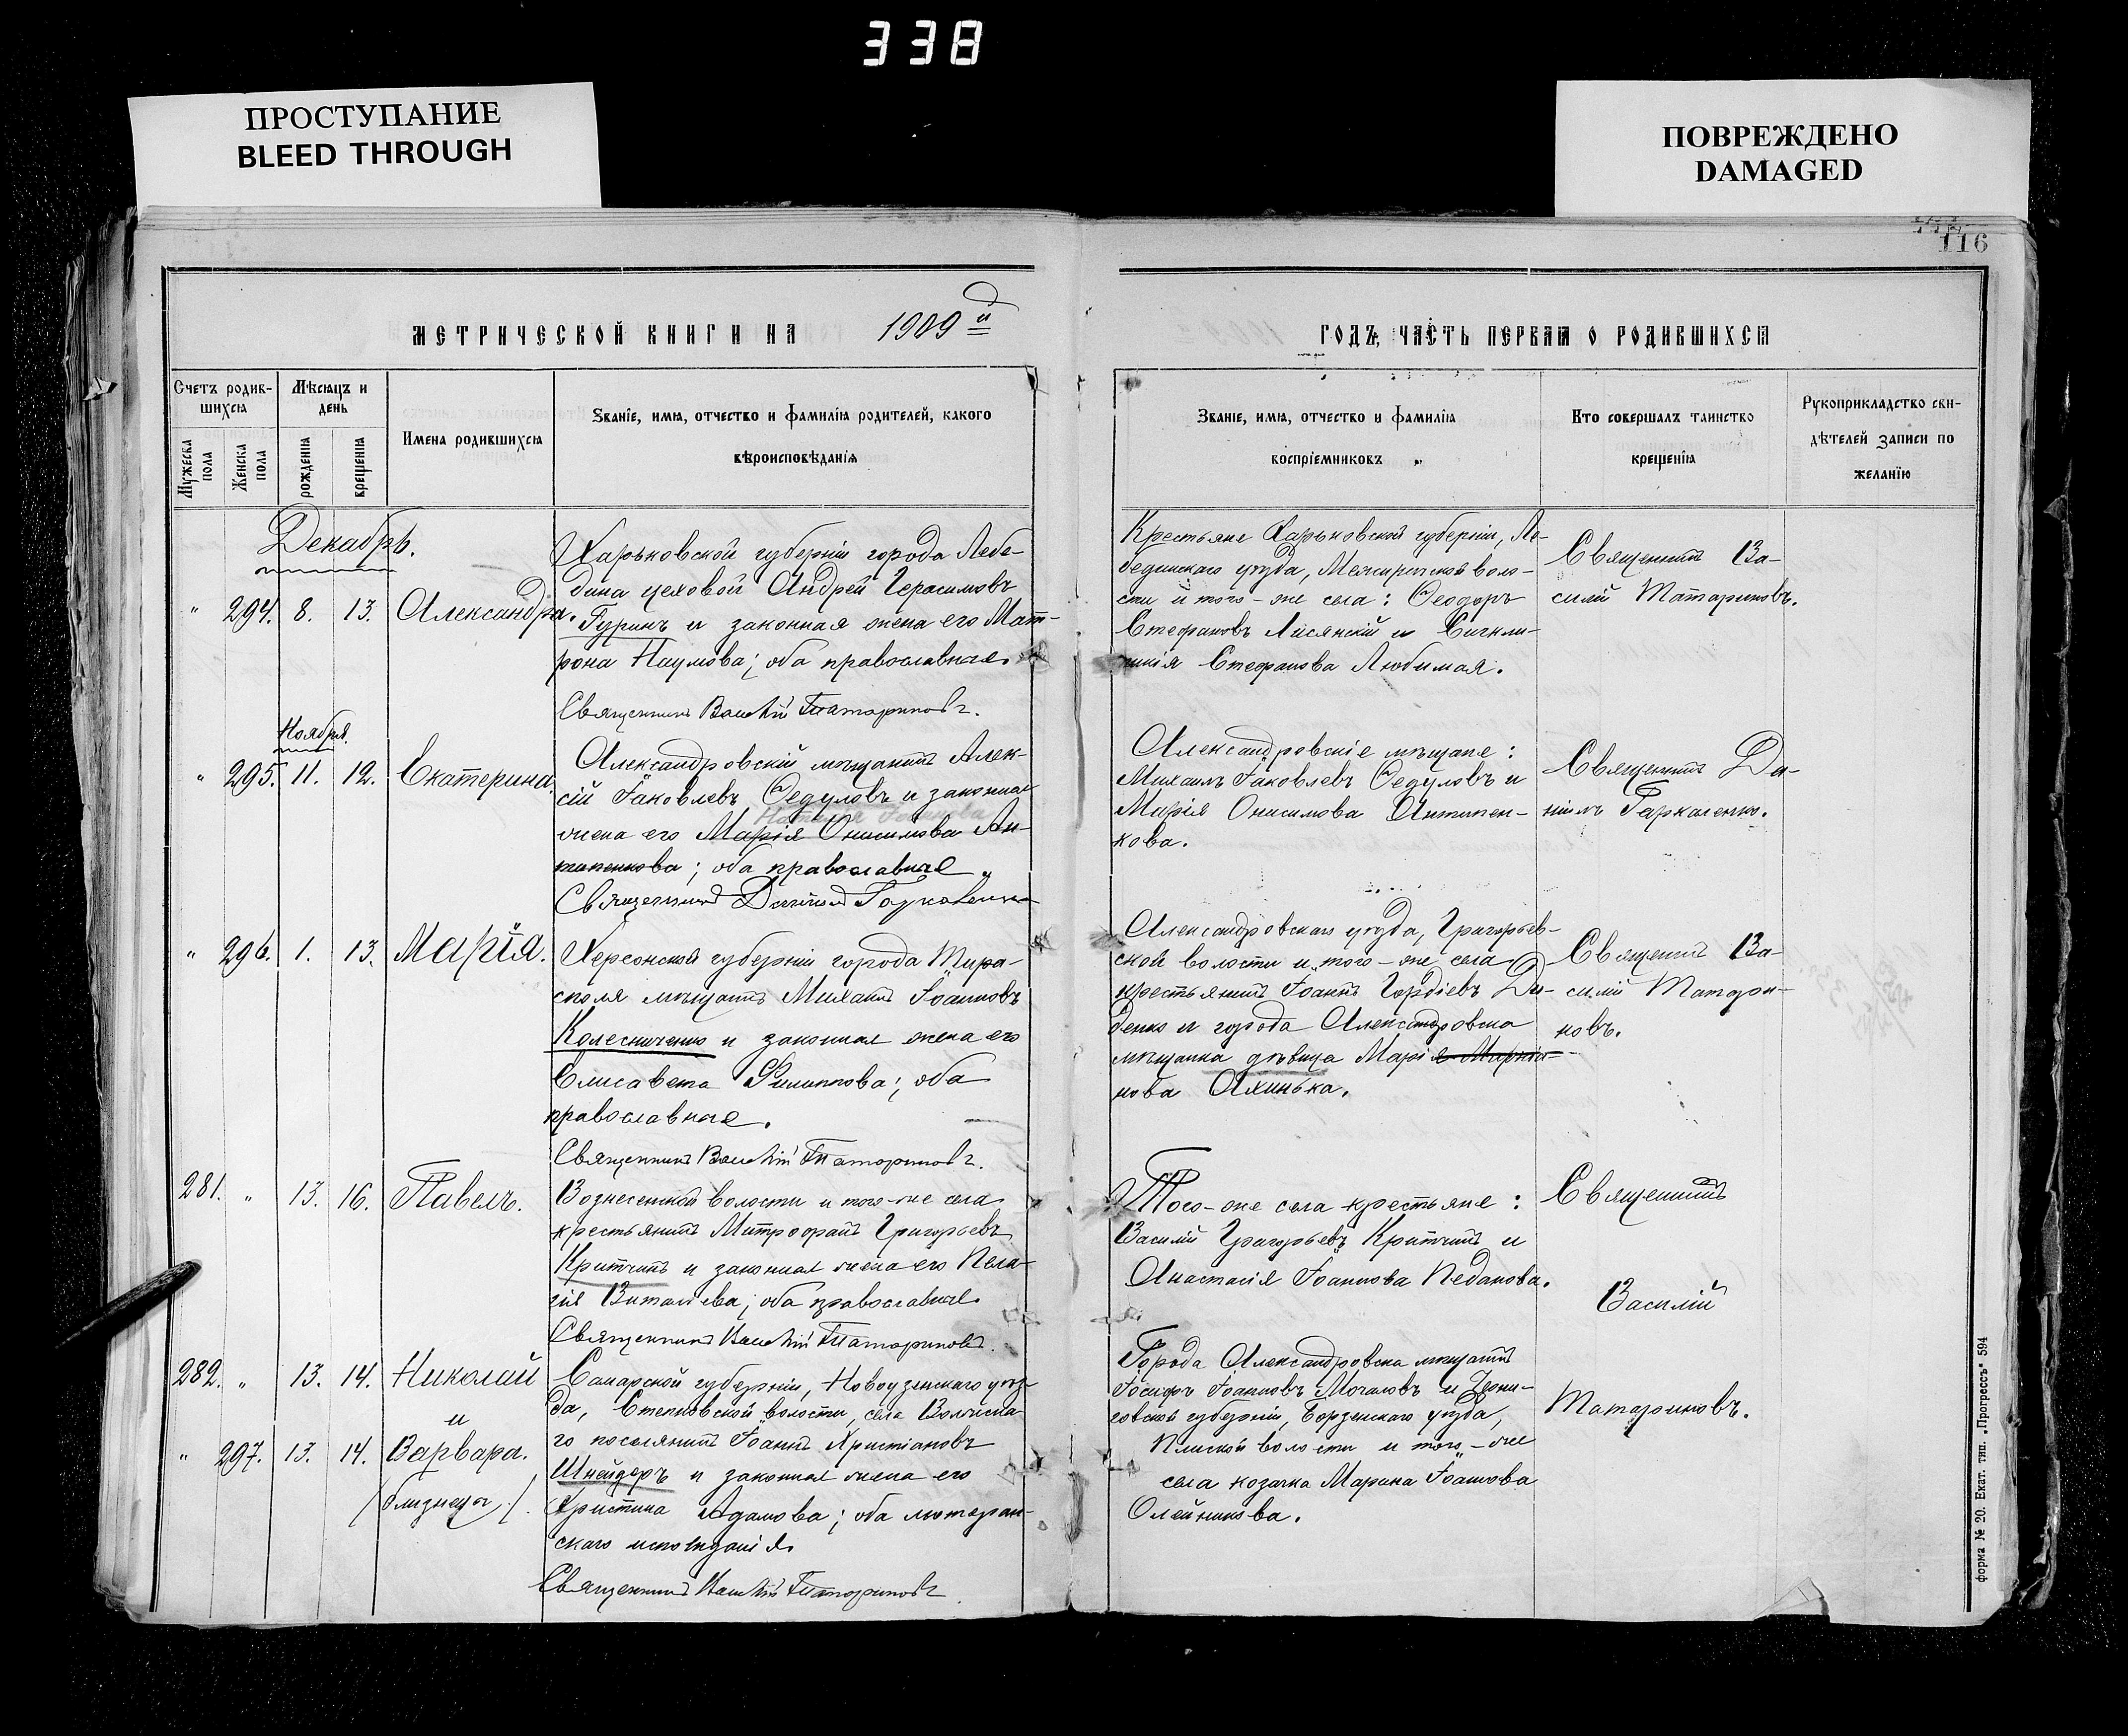 338
ПРОСТУПАНИЕ
BLEED THROUGH
ПОВРЕЖДЕНО
DAMAGED
116
МЕТРИЧЕСКОЙ КНИГИ НА 1909й
ГОДЪ, ЧАСТЬ ПЕРВАЯ О РОДИВШИХСЯ
Счетъ родив-
шихся
Мѣсяцъ и
день
Мужеска пола
Женска пола
рожденія
крещенія
Имена родившихся
Званіе, имя, отчество и фамилія родителей, какого
вѣроисповѣданія
Званіе, имя, отчество и фамилія
воспріемниковъ
Кто совершалъ таинство
крещенія
Рукоприкладство сви-
дѣтелей записи по
желанію
Декабрь.
" 294. 8. 13. Александра.
Харьковской губерніи города Лебе-
дина цеховой Андрей Герасимовъ
Гуринъ и законная жена его Мат-
рона Наумова; оба православные.
Священникъ Василій Татариновъ.
Крестьяне Харьковской губерніи, Ле-
бединскаго уѣзда, Межиричской воло-
сти и того-же села: Ѳеодоръ
Стефановъ Лисянскій и
Стефанова Любимая.
Священникъ Ва-
силій Татариновъ.
Ноября.
" 295. 11. 12. Екатерина
Александровскій мѣщанинъ Алек-
сій Іаковлевъ Ѳедуловъ и законная
жена его Марія Онисимова Ан-
типенкова; оба православные.
Священникъ Даніилъ Гаркавенко
Александровскіе мѣщане:
Михаилъ Іаковлевъ Ѳедуловъ и
Марія Онисимова Антипен-
кова.
Священникъ Да-
ніилъ Гаркавенко.
" 296. 1. 13. Марія.
Херсонской губерніи города Тира-
споля мѣщанинъ Михаилъ Іоанновъ
Колесниченко и законная жена его
Елисавета Филиппова; оба
православные.
Священникъ Василій Татариновъ.
Александровскаго уѣзда, Григорьев-
ской волости и того-же села
крестьянинъ Іоаннъ Гордіевъ Ди-
денко и города Александровска
мѣщанка дѣвица Марія
нова Ахинька.
Священникъ Ва-
силій Татари-
новъ.
281. " 13. 16. Павелъ.
Вознесенской волости и того-же села
крестьянинъ Митрофанъ Григорьевъ
Критчинъ и законная жена его Пела-
гія Витальева; оба православные.
Священникъ Василій Татариновъ.
Того-же села крестьяне:
Василій Григорьевъ Критчинъ и
Анастасія Іоаннова Педанова.
Священникъ
Василій
282. " 13. 14. Николай
и
" 297. 13. 14. Варвара.
/близнецы/.
Самарской губерніи, Новоузенскаго уѣз-
да, Степновской волости, села
го поселянинъ Іоаннъ Христіановъ
Шнейдеръ и законная жена его
Христина Адамова; оба лютеран-
скаго исповѣданія.
Священникъ Василій Татариновъ
Города Александровска мѣщанинъ
Іосифъ Іоанновъ Мочаловъ и Черни-
говской губерніи, Борзенскаго уѣзда,
Плиской волости и того-же
села козачка Марина Іоаннова
Олейникова.
Татариновъ.
форма № 20. Екат. тип. „Прогрессъ“ 594